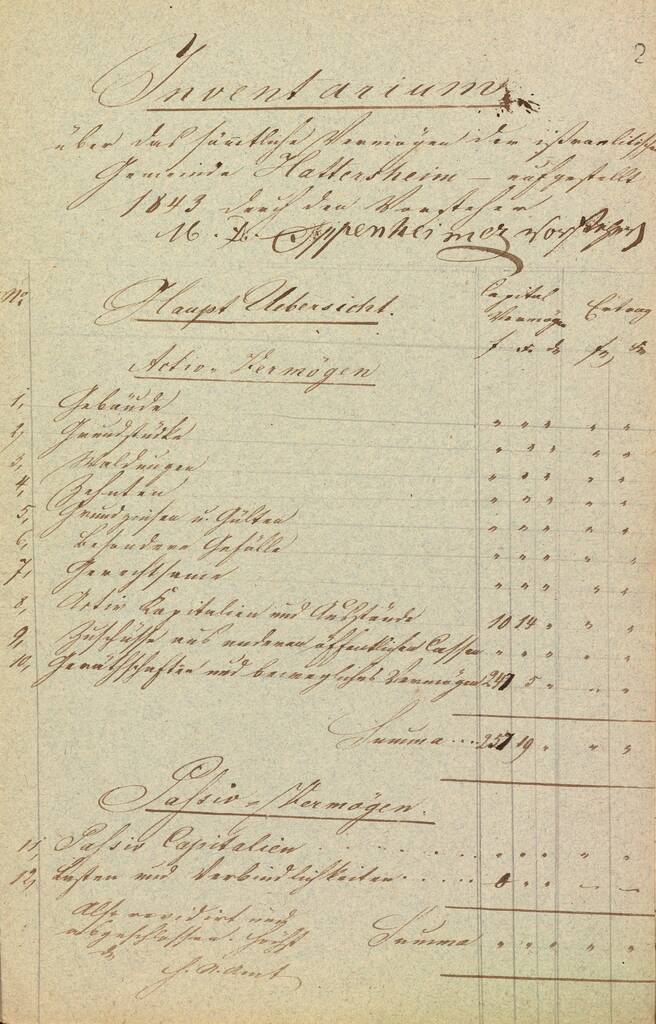 2
Inventarium
über das sämtliche Vermögen der israelitischen
Gemeinde Hattersheim – aufgestellt
1843 durch den Vorsteher
M. Oppenheimer Vorsteher
No.
Haupt Uebersicht.
Capital Vermögen
Ertrag
Activ-Vermögen
1, Gebäude " " " " "
2, Grundstücke " " " " "
3, Waldungen " " " " "
4, Zehnten " " " " "
5, Grundzinsen u. Gülten " " " " "
6, Besondere Gefälle " " " " "
7, Gerechtsame " " " " "
8, Activ Kapitalien und Ausstände 10 14 " " "
9, Zuschüsse aus anderen öffentlichen Cassen " " " " "
10, Geräthschaften und bewegliches Vermögen 247 5 " " "
Summa 257 19 " " "
Passiv-Vermögen.
11, Passiv Capitalien " " " " "
12, Lasten und Verbindlichkeiten
Also revidirt und
abgeschlossen. Höchst
Summa " " " " "
Amt